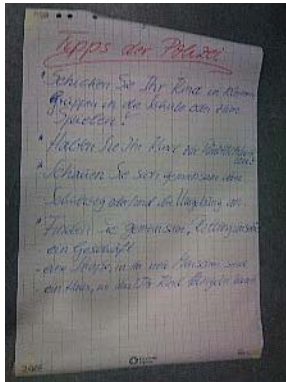 Tipps der Polizei
* Schicken Sie Ihr Kind in kleinen
Gruppen in die Schule oder zum
Spielen!
* Halten Sie Ihr Kind zur
* Schauen Sie sich gemeinsam den
Schulweg oder und die Umgebung an
* Finden Sie gemeinsam
ein Geschäft
- eine in der viele Menschen sind
- ein Haus, in dem Ihr Kind klingeln kann